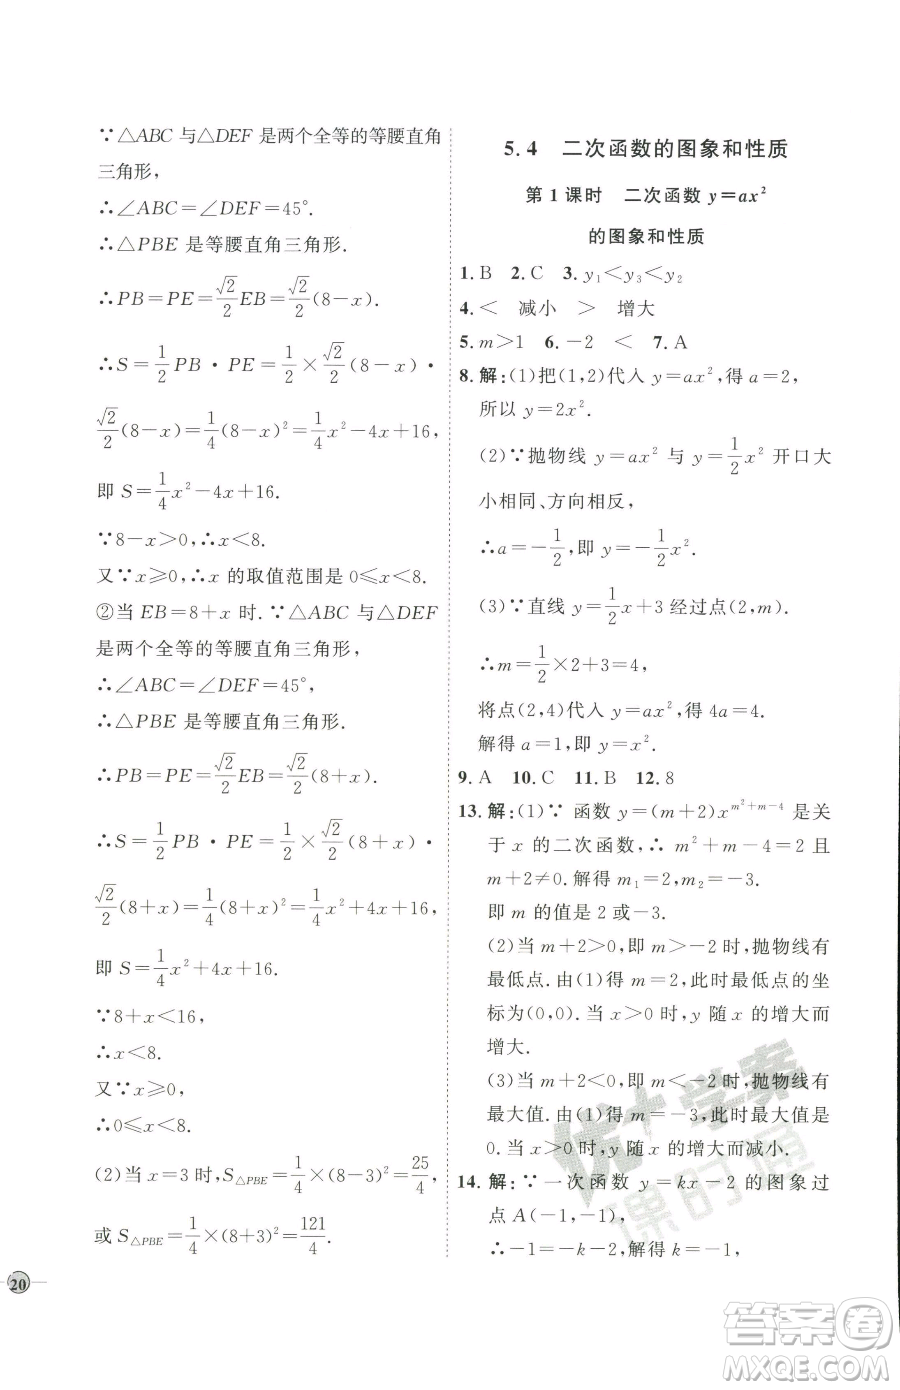 ∵△ABC与△DEF是两个全等的等腰直角
三角形，
∴∠ABC=∠DEF=45°.
∴△PBE是等腰直角三角形.
∴PB=PE=√2/2 EB=√2/2(8-x).
∴S=1/2 PB·PE=1/2×√2/2(8-x)·
√2/2(8-x)=1/4(8-x)²=1/4x²-4x+16，
即S=1/4x²-4x+16.
∵8-x>0，∴x<8.
又∵x≥0，∴x的取值范围是0≤x<8.
②当EB=8+x时.∵△ABC与△DEF
是两个全等的等腰直角三角形，
∴∠ABC=∠DEF=45°，
∴△PBE是等腰直角三角形.
∴PB=PE=√2/2 EB=√2/2(8+x).
∴S=1/2 PB·PE=1/2×√2/2(8+x)·
√2/2(8+x)=1/4(8+x)²=1/4x²+4x+16，
即S=1/4x²+4x+16.
∵8+x<16，
∴x<8.
又∵x≥0，
∴0≤x<8.
(2)当x=3时，S△PBE=1/4×(8-3)²=25/4，
或S△PBE=1/4×(8+3)²=121/4.
20
5.4 二次函数的图象和性质
第1课时 二次函数y=ax²
的图象和性质
1.B 2.C 3.y₁<y₃<y₂
4.< 减小 > 增大
5.m>1 6.-2 < 7.A
8.解：(1)把(1，2)代入y=ax²，得a=2，
所以y=2x².
(2)∵抛物线y=ax²与y=1/2x²开口大
小相同、方向相反，
∴a=-1/2，即y=-1/2x².
(3)∵直线y=1/2x+3经过点(2，m).
∴m=1/2×2+3=4，
将点(2，4)代入y=ax²，得4a=4.
解得a=1，即y=x².
9.A 10.C 11.B 12.8
13.解：(1)∵函数y=(m+2)x^(m²+m-4)是关
于x的二次函数，∴m²+m-4=2且
m+2≠0.解得m₁=2，m₂=-3.
即m的值是2或-3.
(2)当m+2>0，即m>-2时，抛物线有
最低点.由(1)得m=2，此时最低点的坐
标为(0，0).当x>0时，y随x的增大而
增大.
(3)当m+2<0，即m<-2时，抛物线有
最大值.由(1)得m=-3，此时最大值为
0.当x>0时，y随x的增大而减小.
14.解：∵一次函数y=kx-2的图象过
点A(-1，-1)，
∴-1=-k-2，解得k=-1，
优+学案
课时通
答案圈
MXQE.COM